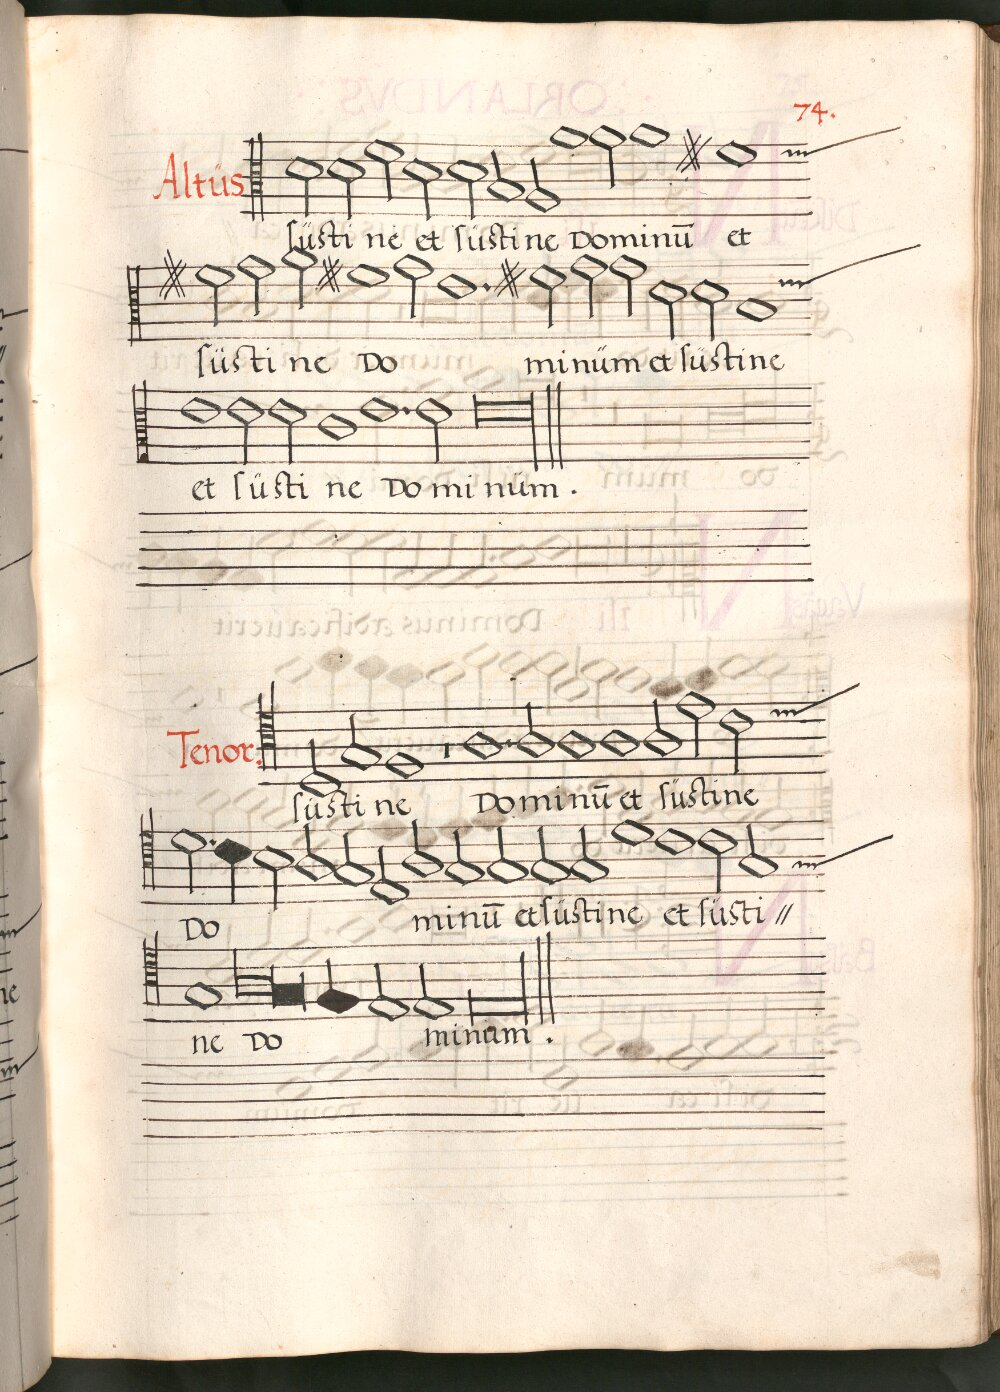 74.
Altüs
süsti ne et süstine Dominū et
süsti ne Do minüm et süstine
et süsti ne Do mi nüm .
Tenor.
süsti ne Dominū et süstine
Do minū et süstine et süsti //
ne Do minum .